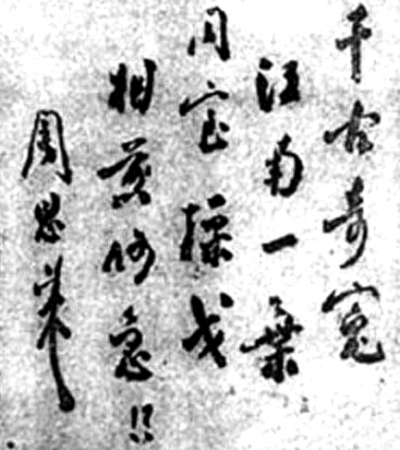 千古奇寃
江南一葉
同室操戈
相煎何急!!
周恩來